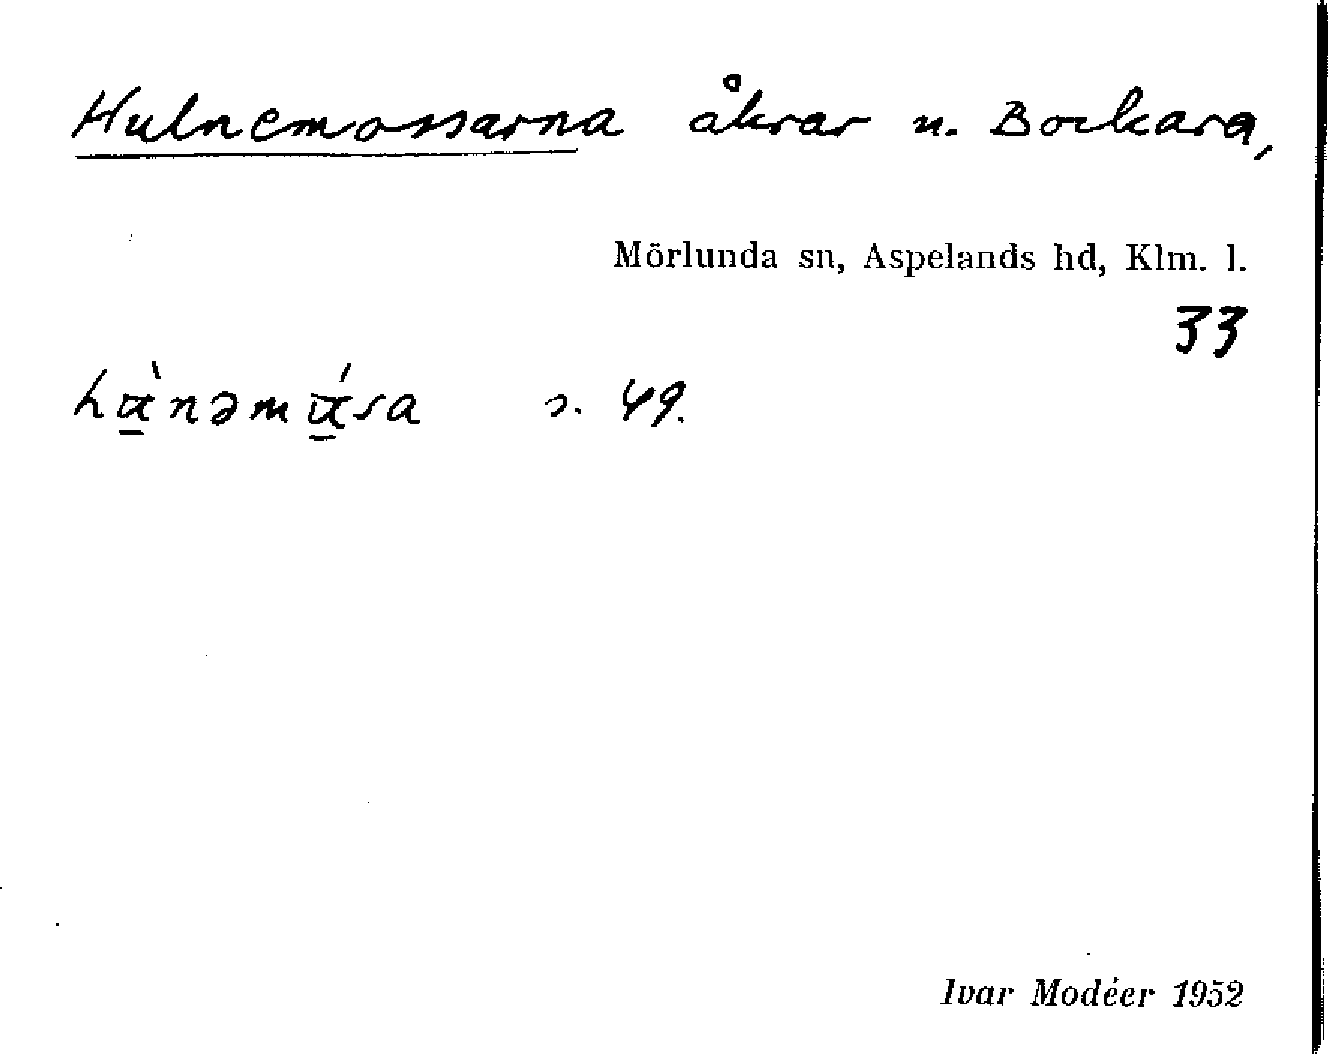 Hulnemossarna åkrar n. Bockara,
Mörlunda sn, Aspelands hd, Klm. l.
33
s. 49.
Ivar Modéer 1952